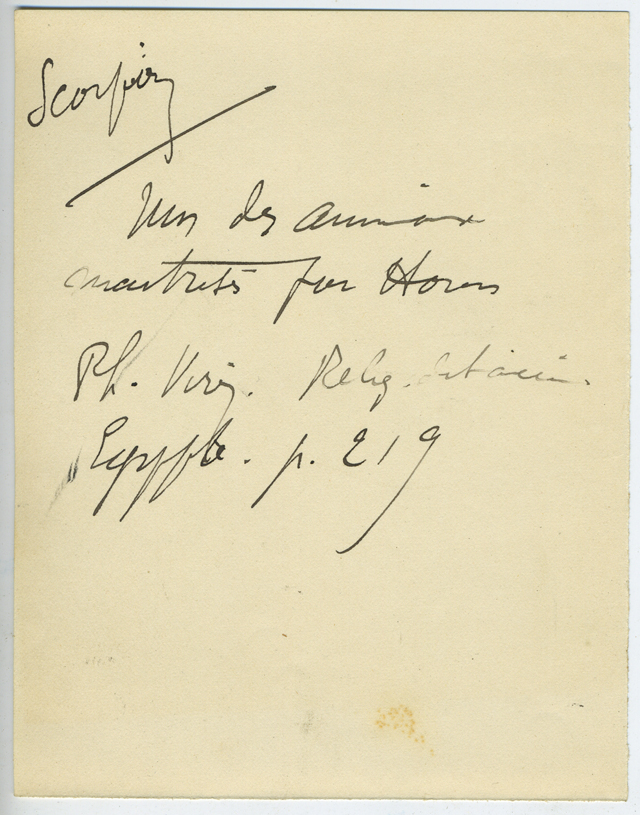 Scorpion
Un des animaux
maîtrisés par Horus
Ph. Virey. Relig.
Egypte. p. 219